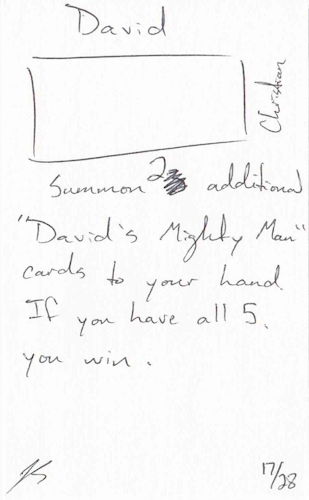 David
Christian
Summon 2 additional
"David's Mighty Man"
cards to your hand.
If you have all 5,
you win.
17/28